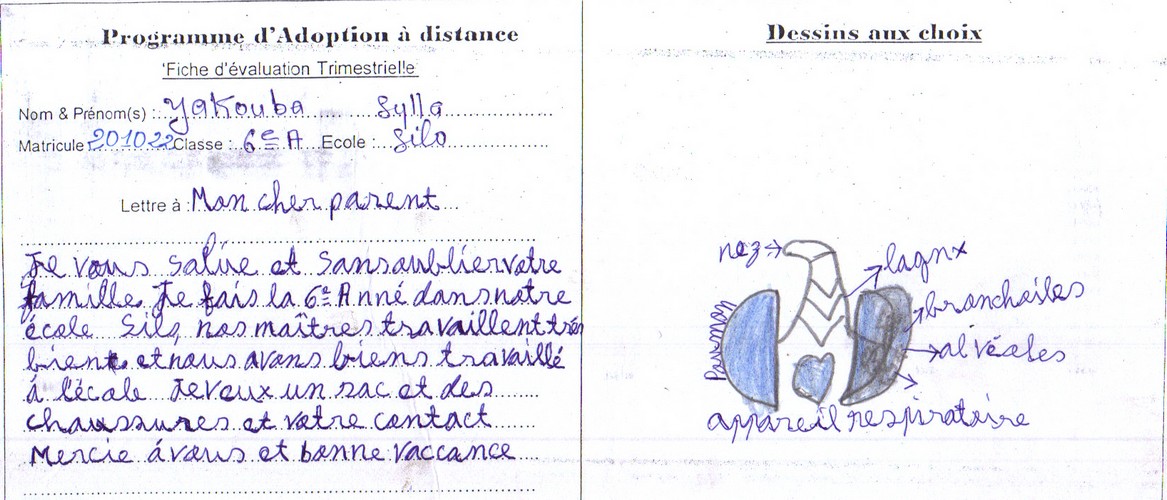 Programme d'Adoption à distance
'Fiche d'évaluation Trimestrielle
Nom & Prénom(s) : Yakouba Sylla
Matricule 201022 Classe : 6e A Ecole : Silo
Lettre à : Mon cher parent
Je vous salue et sansoubliervotre
famille. Je fais la 6e Anné dansnotre
école Silo, nos maîtres travaillent très
bient etnous avons biens travaillé
á l'école Jeveux un sac et des
chaussures et votre contact
Mercie ávous et bonne vaccance
Dessins aux choix
nez
lagnx
bronchoiles
Paumon
alvéoles
appareil respiratoire